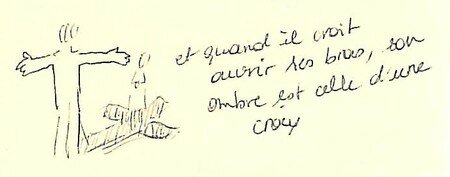 et quand il croit
ouvrir ses bras, son
ombre est celle d'une
croix